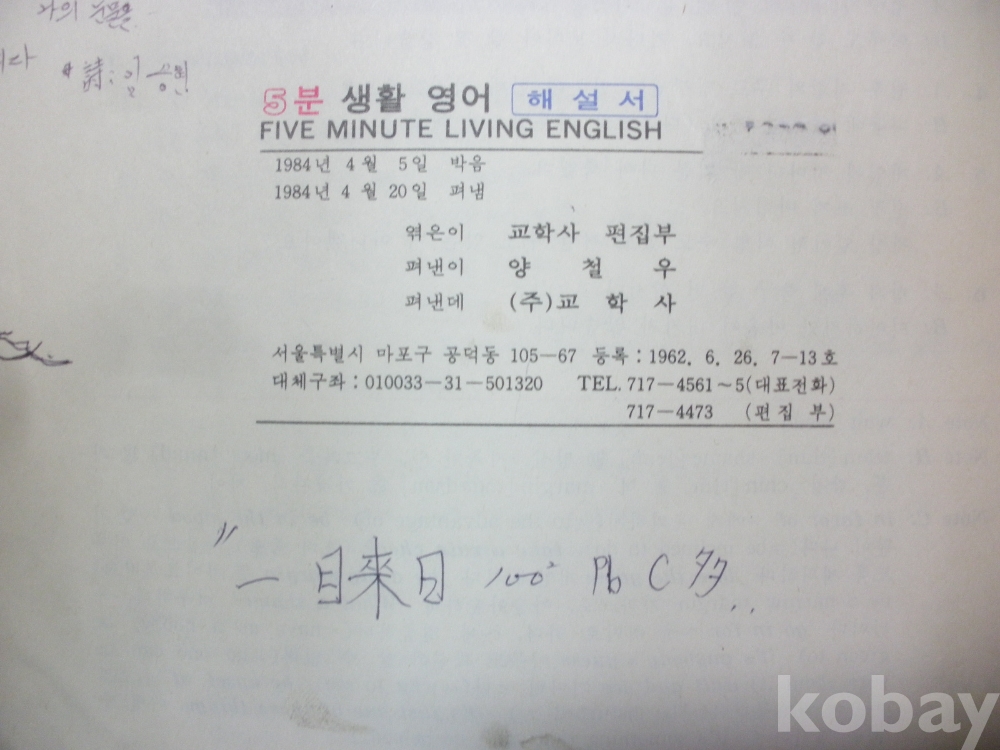 나의 눈물을
* 詩: 이승희
5분 생활 영어 해설서
FIVE MINUTE LIVING ENGLISH
1984년 4월 5일 박음
1984년 4월 20일 펴냄
엮은이 교학사 편집부
펴낸이 양철우
펴낸데 (주)교학사
서울특별시 마포구 공덕동 105-67 등록: 1962. 6. 26. 7-13호
대체구좌: 010033-31-501320 TEL. 717-4561~5(대표전화)
717-4473 (편집부)
" 一日來日 100° Pb C 多..
kobay